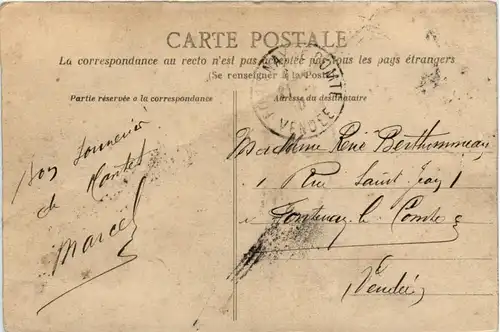 CARTE POSTALE
La correspondance au recto n'est pas acceptée par tous les pays étrangers
(Se renseigner à la Poste)
Partie réservée à la correspondance
Adresse du destinataire
COMTE
VENDÉE
Bon souvenir
de Nantes
Marcel
Madame René Berthommeau
1 Rue Saint Jean 1
Fontenay le Comte
Vendée